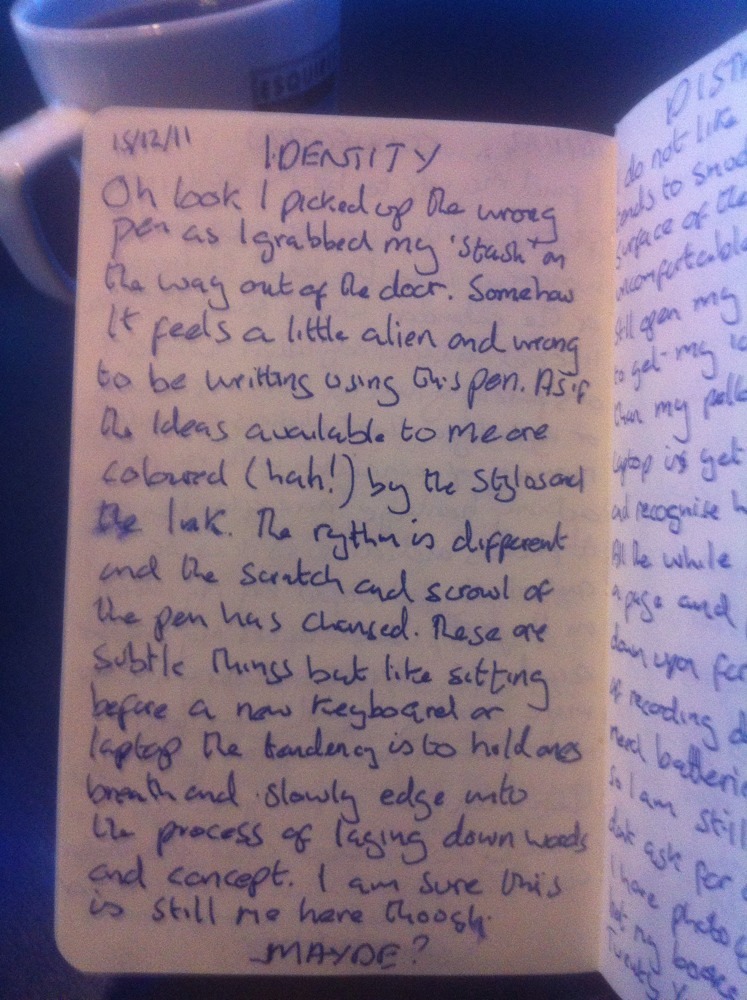 ESQUI
15/12/11 IDENTITY
Oh look I picked up the wrong
pen as I grabbed my 'stash' on
the way out of the door. Somehow
It feels a little alien and wrong
to be writting using this pen. As if
the Ideas available to me are
coloured (hah!) by the Stylus and
the Ink. The rythm is different
and the scratch and scrowl of
the pen has changed. These are
subtle things but like sitting
before a new keyboard or
laptop the tendency is to hold ones
breath and slowly edge into
the process of laying down words
and concept. I am sure this
is still me here though.
MAYBE?
DIST
do not like
tends to smud
surface of the
uncomfortable
still open my
to get my
than my
laptop is get
and recognise
All the while
a page and
down upon for
of recording d
need batterie
so I am still
dont ask for
I have photo
but my books
Twenty